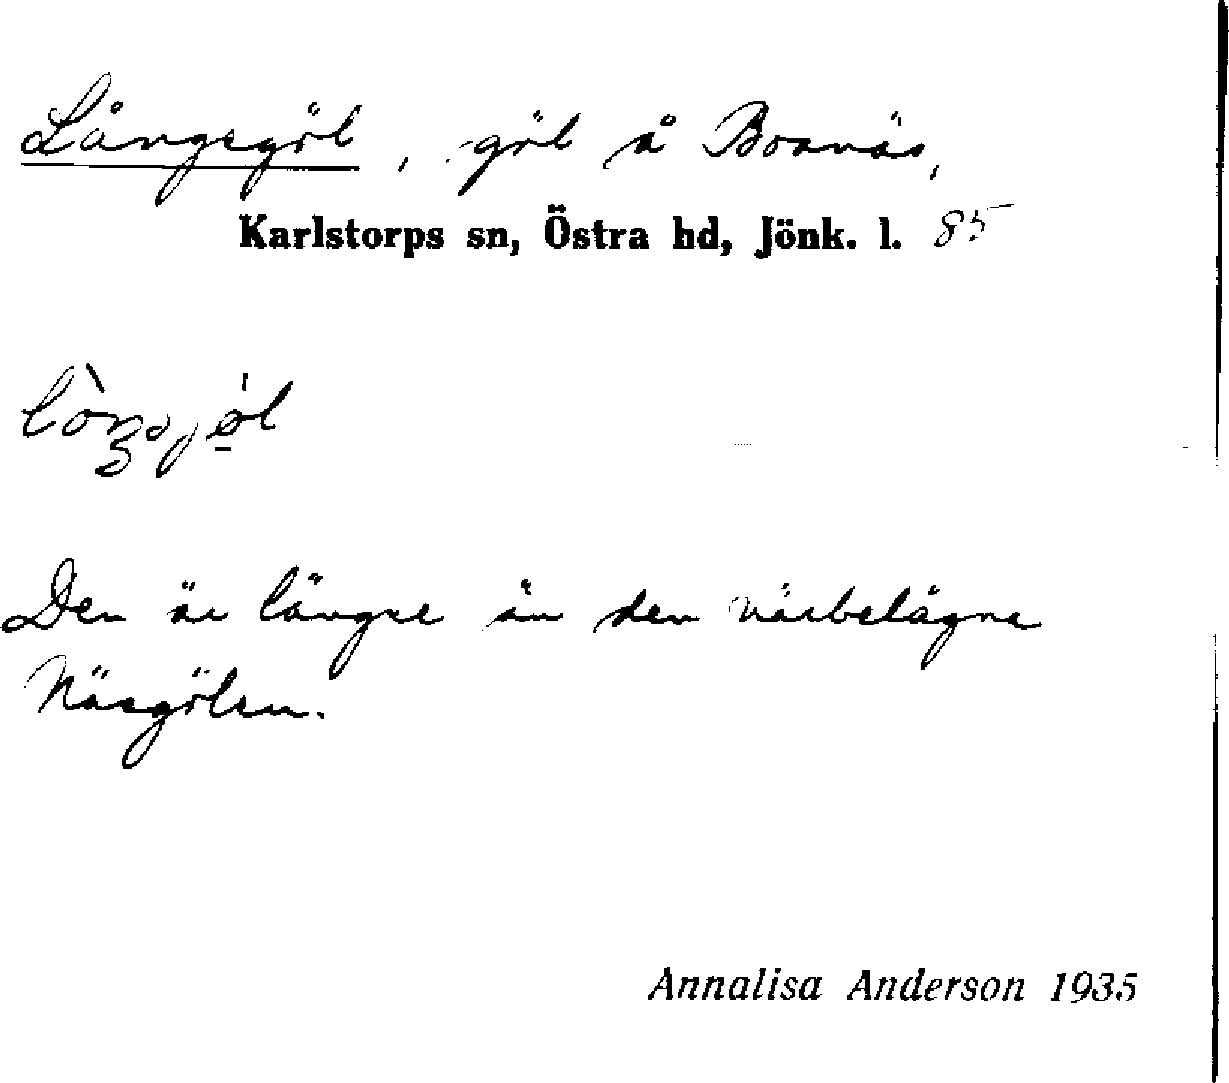 Långegöl, göl å Boanäs,
Karlstorps sn, Östra hd, Jönk. l. 85
Den är längre än den närbelägne
Näsgölen.
Annalisa Anderson 1935